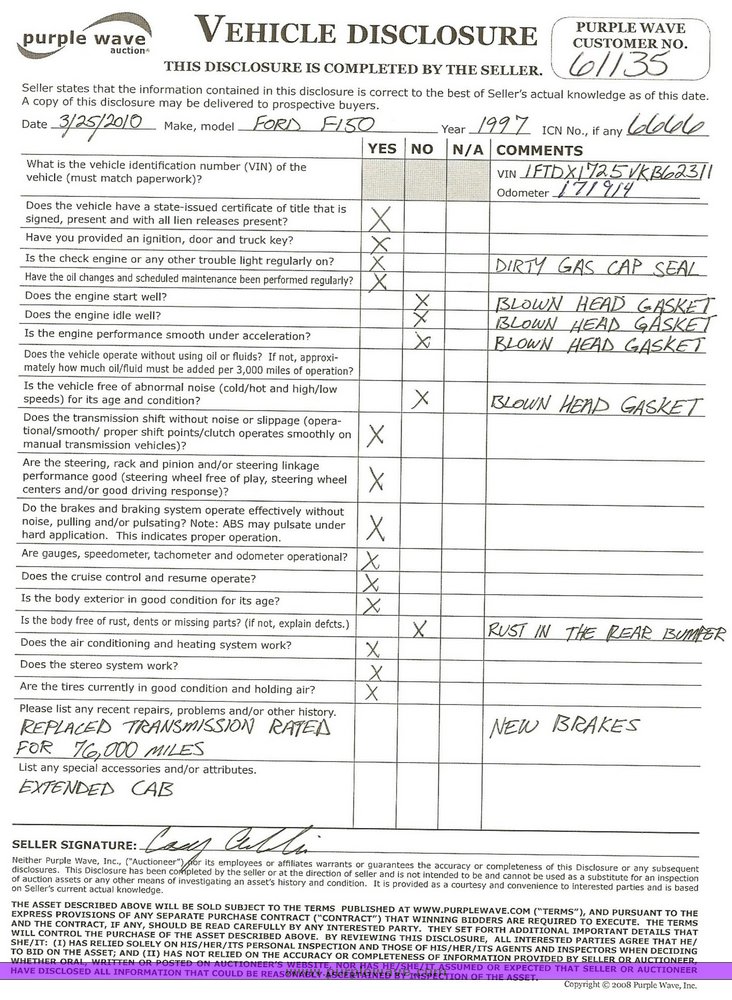 purple wave
auction
VEHICLE DISCLOSURE
PURPLE WAVE
CUSTOMER NO.
61135
THIS DISCLOSURE IS COMPLETED BY THE SELLER.
Seller states that the information contained in this disclosure is correct to the best of Seller's actual knowledge as of this date.
A copy of this disclosure may be delivered to prospective buyers.
Date 3/25/2010 Make, model FORD F150 Year 1997 ICN No., if any 6666
YES NO N/A COMMENTS
What is the vehicle identification number (VIN) of the
vehicle (must match paperwork)?
VIN 1FTDX1725VKB62311
Odometer 171914
Does the vehicle have a state-issued certificate of title that is
signed, present and with all lien releases present? X
Have you provided an ignition, door and truck key? X
Is the check engine or any other trouble light regularly on? X DIRTY GAS CAP SEAL
Have the oil changes and scheduled maintenance been performed regularly? X
Does the engine start well? X BLOWN HEAD GASKET
Does the engine idle well? X BLOWN HEAD GASKET
Is the engine performance smooth under acceleration? X BLOWN HEAD GASKET
Does the vehicle operate without using oil or fluids? If not, approxi-
mately how much oil/fluid must be added per 3,000 miles of operation?
Is the vehicle free of abnormal noise (cold/hot and high/low
speeds) for its age and condition? X BLOWN HEAD GASKET
Does the transmission shift without noise or slippage (opera-
tional/smooth/ proper shift points/clutch operates smoothly on
manual transmission vehicles)? X
Are the steering, rack and pinion and/or steering linkage
performance good (steering wheel free of play, steering wheel
centers and/or good driving response)? X
Do the brakes and braking system operate effectively without
noise, pulling and/or pulsating? Note: ABS may pulsate under
hard application. This indicates proper operation. X
Are gauges, speedometer, tachometer and odometer operational? X
Does the cruise control and resume operate? X
Is the body exterior in good condition for its age? X
Is the body free of rust, dents or missing parts? (if not, explain defcts.) X RUST IN THE REAR BUMPER
Does the air conditioning and heating system work? X
Does the stereo system work? X
Are the tires currently in good condition and holding air? X
Please list any recent repairs, problems and/or other history.
REPLACED TRANSMISSION RATED NEW BRAKES
FOR 76,000 MILES
List any special accessories and/or attributes.
EXTENDED CAB
SELLER SIGNATURE: Casey
Neither Purple Wave, Inc., ("Auctioneer") nor its employees or affiliates warrants or guarantees the accuracy or completeness of this Disclosure or any subsequent
disclosures. This Disclosure has been completed by the seller or at the direction of seller and is not intended to be and cannot be used as a substitute for an inspection
of auction assets or any other means of investigating an asset's history and condition. It is provided as a courtesy and convenience to interested parties and is based
on Seller's current actual knowledge.
THE ASSET DESCRIBED ABOVE WILL BE SOLD SUBJECT TO THE TERMS PUBLISHED AT WWW.PURPLEWAVE.COM ("TERMS"), AND PURSUANT TO THE
EXPRESS PROVISIONS OF ANY SEPARATE PURCHASE CONTRACT ("CONTRACT") THAT WINNING BIDDERS ARE REQUIRED TO EXECUTE. THE TERMS
AND THE CONTRACT, IF ANY, SHOULD BE READ CAREFULLY BY ANY INTERESTED PARTY. THEY SET FORTH ADDITIONAL IMPORTANT DETAILS THAT
WILL CONTROL THE PURCHASE OF THE ASSET DESCRIBED ABOVE. BY REVIEWING THIS DISCLOSURE, ALL INTERESTED PARTIES AGREE THAT HE/
SHE/IT: (I) HAS RELIED SOLELY ON HIS/HER/ITS PERSONAL INSPECTION AND THOSE OF HIS/HER/ITS AGENTS AND INSPECTORS WHEN DECIDING
TO BID ON THE ASSET; AND (II) HAS NOT RELIED ON THE ACCURACY OR COMPLETENESS OF INFORMATION PROVIDED BY SELLER OR AUCTIONEER,
WHETHER ORAL, WRITTEN OR POSTED ON AUCTIONEER'S WEBSITE, NOR HAS HE/SHE/IT ASSUMED OR EXPECTED THAT SELLER OR AUCTIONEER
HAVE DISCLOSED ALL INFORMATION THAT COULD BE REASONABLY ASCERTAINED BY INSPECTION OF THE ASSET.
Copyright © 2008 Purple Wave, Inc.